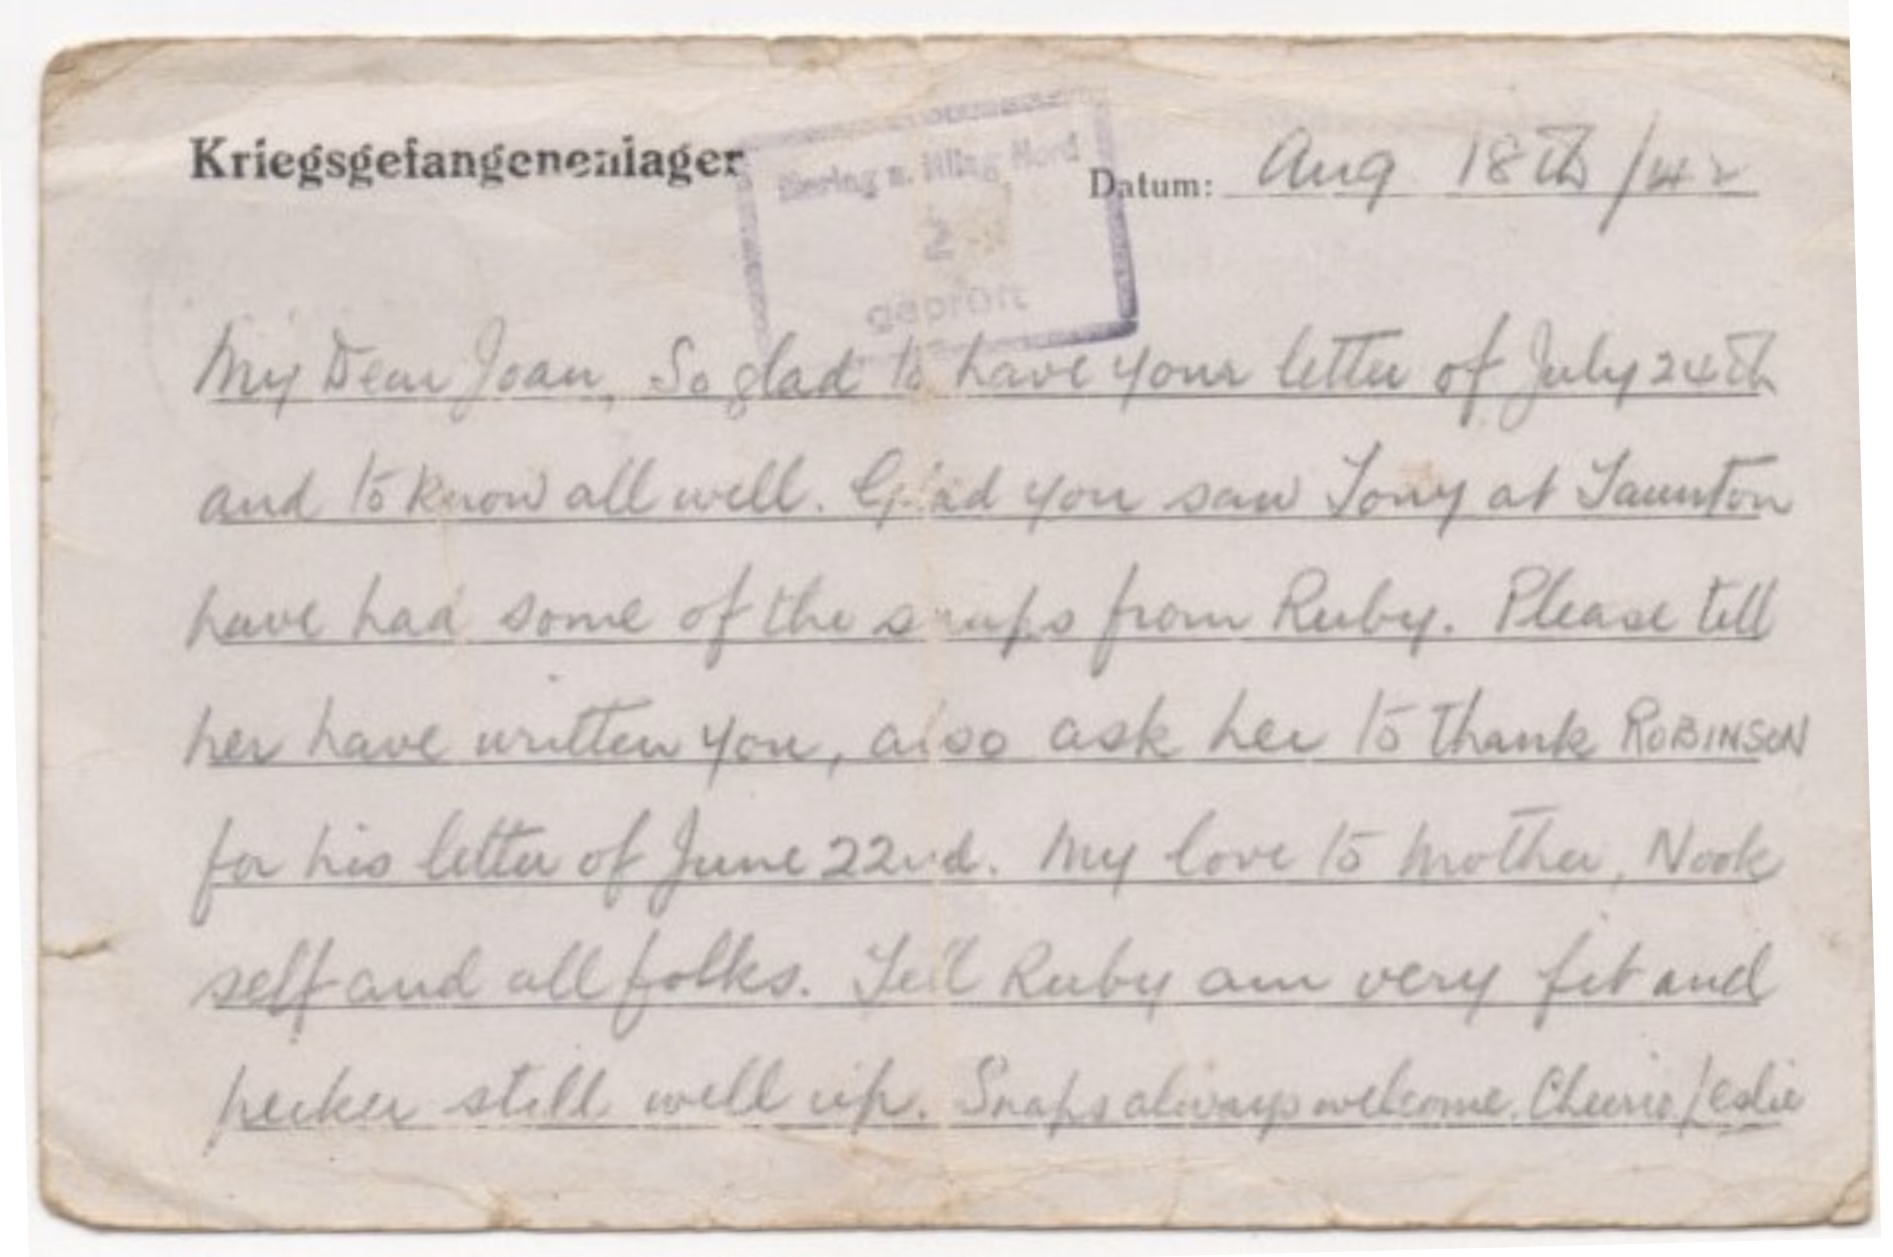 Kriegsgefangenenlager
Marlag u. Milag Nord
Datum: Aug 18th/42
2
geprüft
My Dear Joan, So glad to have your letter of July 24th
and to know all well. Glad you saw Tony at Taunton
have had some of the snaps from Ruby. Please tell
her have written you, also ask her to thank ROBINSON
for his letter of June 22nd. My love to Mother, Nook
self and all folks. Tell Ruby am very fit and
pecker still well up. Snaps always welcome. Cheerio Leslie